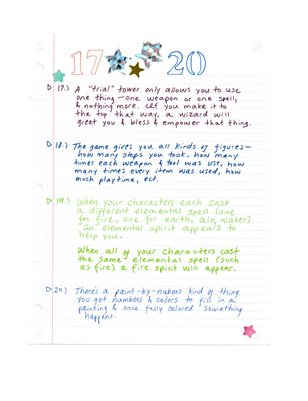 17 20
17.) A "trial" tower only allows you to use
one thing - one weapon or one spell,
& nothing more. Let you make it to
the top that way, a wizard will
greet you & bless & empower that thing.
18.) The game gives you all kinds of figures-
how many steps you took, how many
times each weapon & tool was use, how
many times every item was used, how
much playtime, ect.
19.) When your characters each cast
a different elemental spell (one
for fire, one for earth, air, water)
an elemental spirit appears to
help you.
When all of your characters cast
the same elemental spell (such
as fire) a fire spirit will appear.
20.) There's a paint-by-nubers kind of thing.
You get numbers & colors to fill in a
painting & once fully colored something
happens.